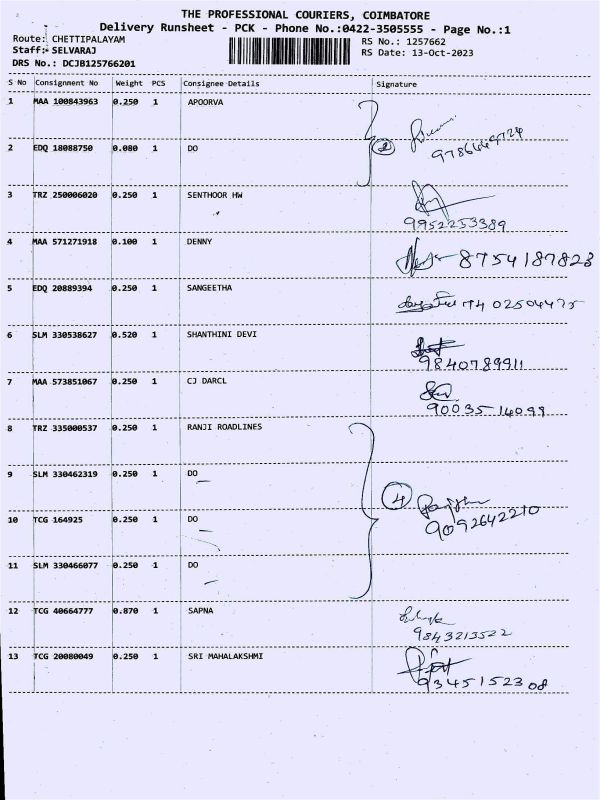 THE PROFESSIONAL COURIERS, COIMBATORE
Delivery Runsheet - PCK - Phone No.:0422-3505555 - Page No.:1
Route: CHETTIPALAYAM RS No.: 1257662
Staff:- SELVARAJ RS Date: 13-Oct-2023
DRS No.: DCJB125766201
S No Consignment No Weight PCS Consignee Details Signature
1 MAA 100843963 0.250 1 APOORVA
2 EDQ 18088750 0.080 1 DO 2
3 TRZ 250006020 0.250 1 SENTHOOR HW
9952253389
4 MAA 571271918 0.100 1 DENNY
8754187823
5 EDQ 20889394 0.250 1 SANGEETHA
6 SLM 330538627 0.520 1 SHANTHINI DEVI
9840789911
7 MAA 573851067 0.250 1 CJ DARCL
9003514099
8 TRZ 335000537 0.250 1 RANJI ROADLINES
9 SLM 330462319 0.250 1 DO 4
10 TCG 164925 0.250 1 DO 9092642210
11 SLM 330466077 0.250 1 DO
12 TCG 40664777 0.870 1 SAPNA
9843213522
13 TCG 20080049 0.250 1 SRI MAHALAKSHMI
9345152308